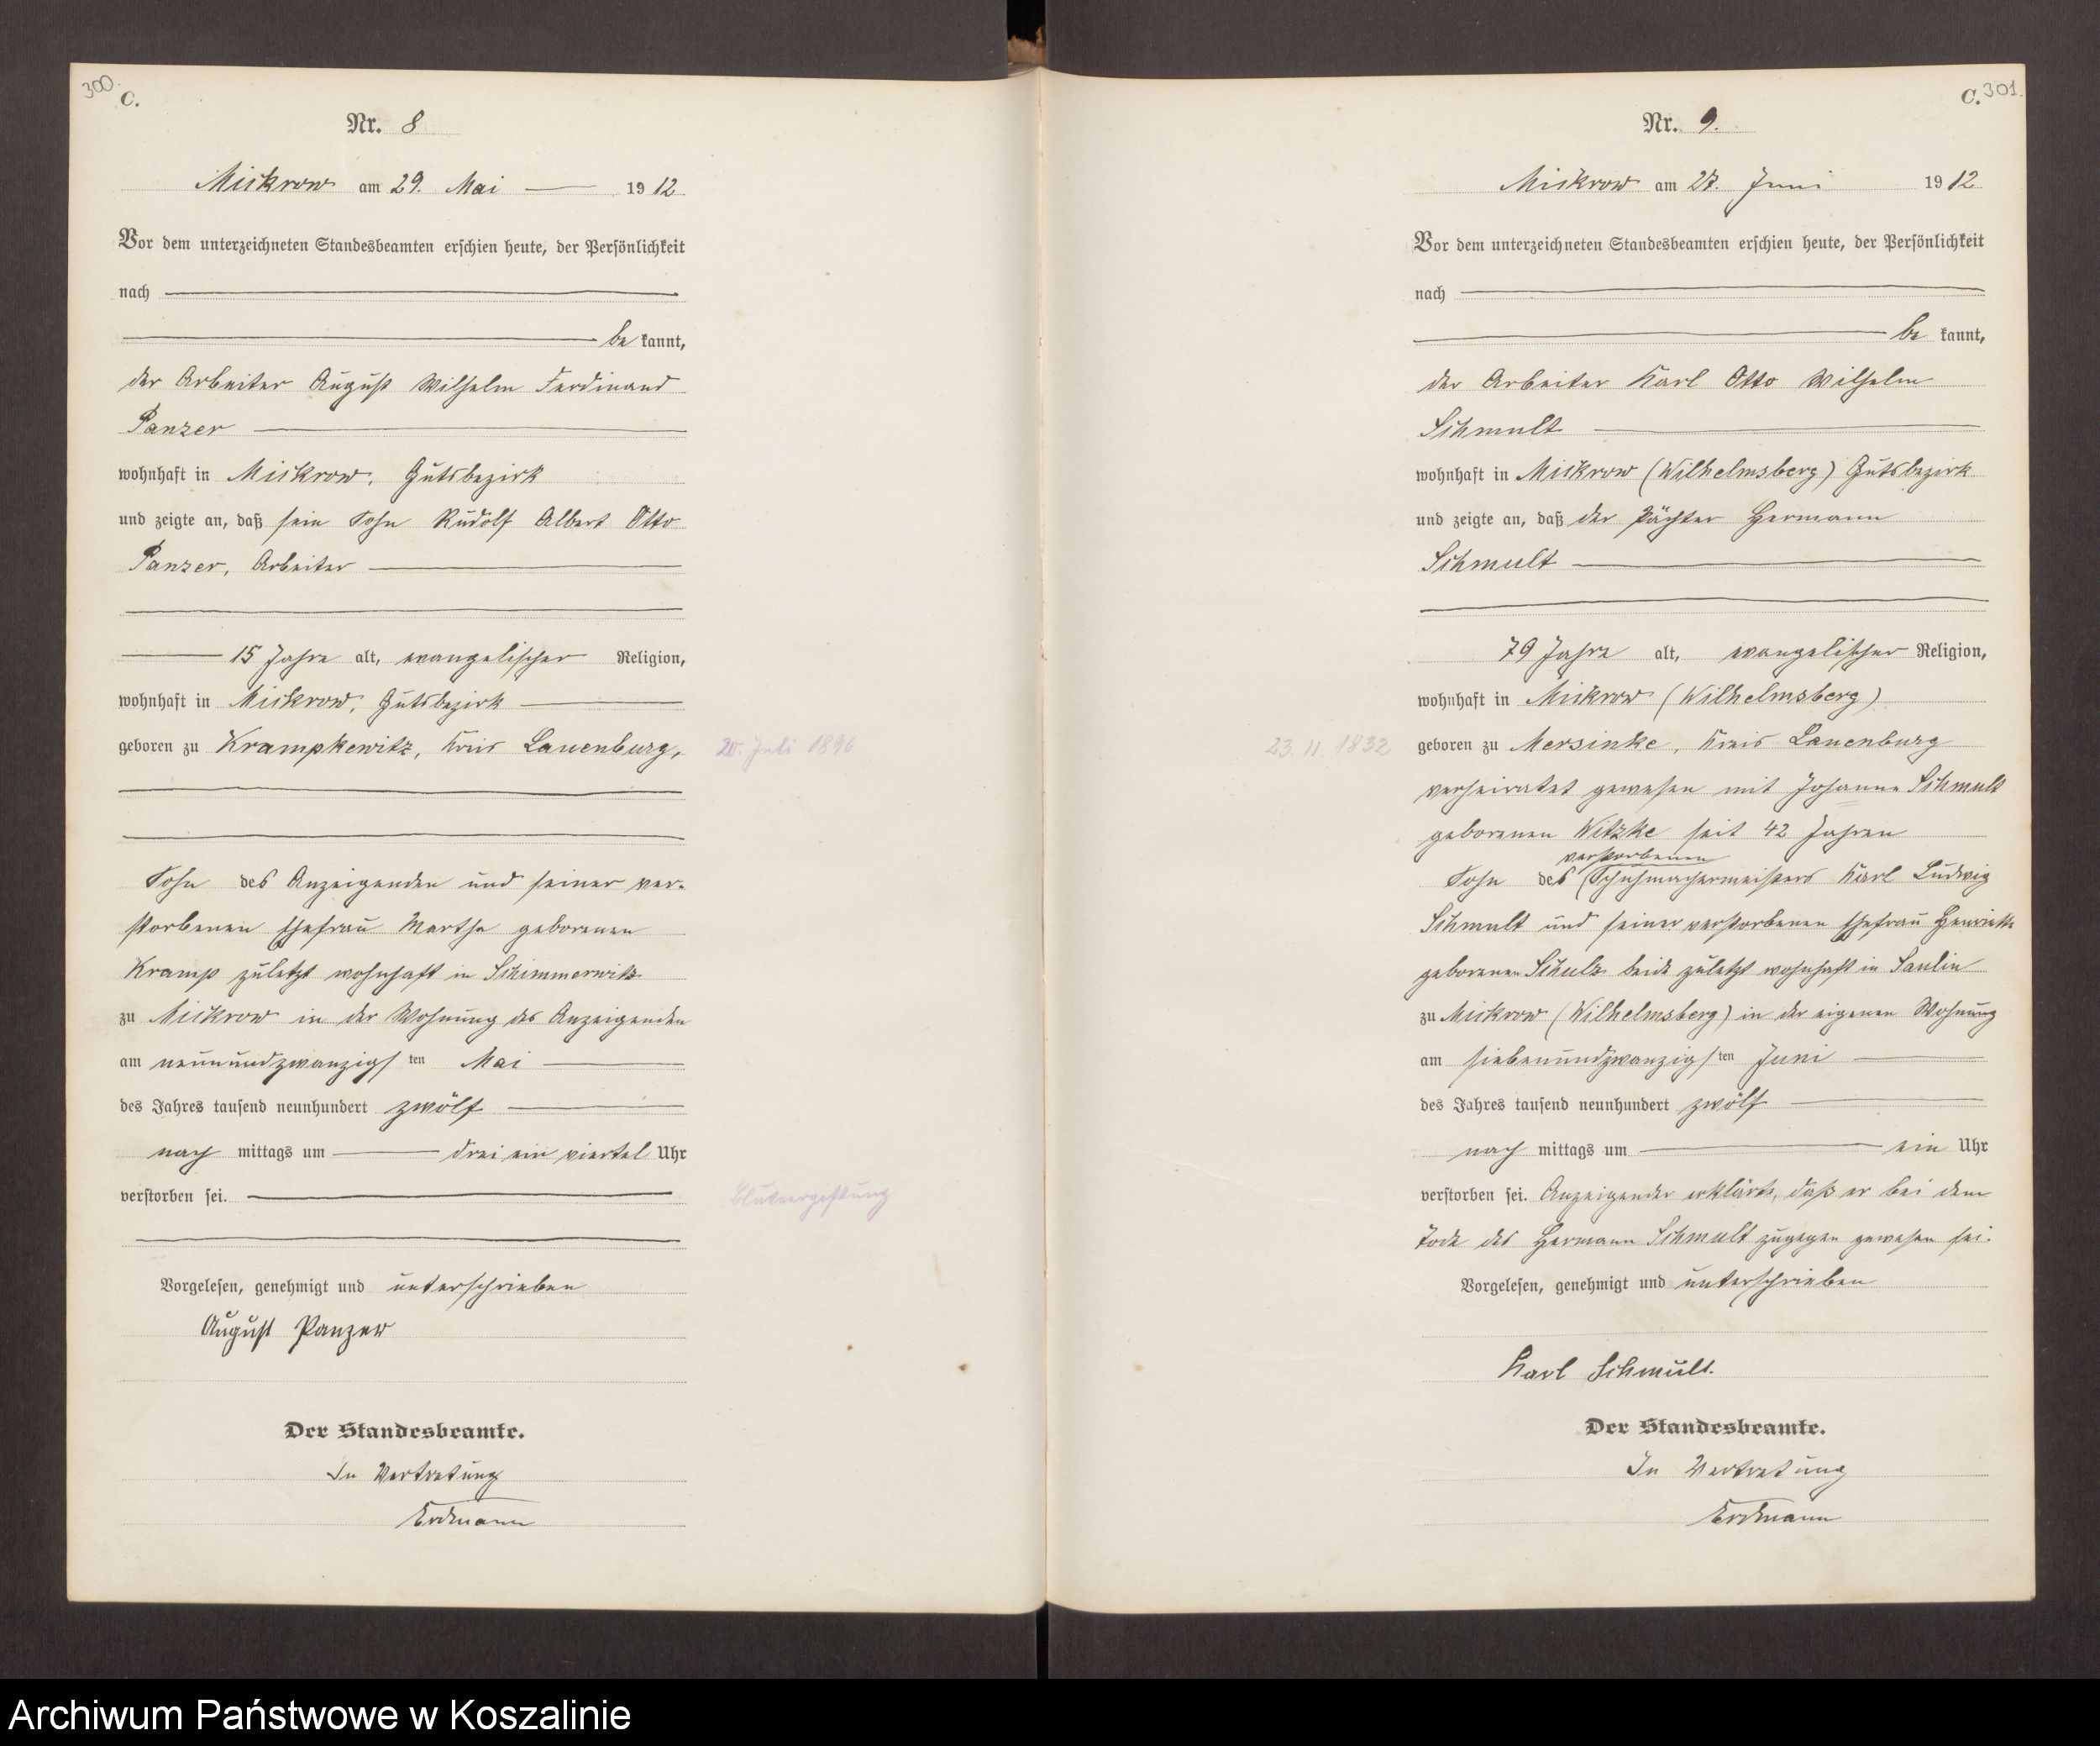 300.
C.
Nr. 8
Mickrow am 29. Mai 1912
Vor dem unterzeichneten Standesbeamten erschien heute, der Persönlichkeit
nach
be kannt,
der Arbeiter August Wilhelm Ferdinand
Panzer
wohnhaft in Mickrow, Gutsbezirk
und zeigte an, daß sein Sohn Rudolf Albert Otto
Panzer, Arbeiter
15 Jahre alt, evangelischer Religion,
wohnhaft in Mickrow, Gutsbezirk
geboren zu Krampkewitz, Kreis Lauenburg,
20. Juli 1896
Sohn des Anzeigenden und seiner ver-
storbenen Ehefrau Martha geborenen
Kramp zuletzt wohnhaft in Schimmerwitz
zu Mickrow in der Wohnung des Anzeigenden
am neunundzwanzigs ten Mai
des Jahres tausend neunhundert zwölf
nach mittags um drei ein viertel Uhr
verstorben sei.
Blutvergiftung
Vorgelesen, genehmigt und unterschrieben
August Panzer
Der Standesbeamte.
In Vertretung
Erdmann
C. 301.
Nr. 9.
Mickrow am 27. Juni 1912
Vor dem unterzeichneten Standesbeamten erschien heute, der Persönlichkeit
nach
be kannt,
der Arbeiter Karl Otto Wilhelm
Schmult
wohnhaft in Mickrow (Wilhelmsberg) Gutsbezirk
und zeigte an, daß der Pächter Hermann
Schmult
79 Jahre alt, evangelischer Religion,
wohnhaft in Mickrow (Wilhelmsberg)
23. 11. 1832
geboren zu Mersinke, Kreis Lauenburg
verheiratet gewesen mit Johanne Schmult
geborenen Witzke seit 42 Jahren
verstorbenen
Sohn des (Schuhmachermeisters Karl Ludwig
Schmult und seiner verstorbenen Ehefrau Henriette
geborenen Schulz beide zuletzt wohnhaft in Saulin
zu Mickrow (Wilhelmsberg) in der eigenen Wohnung
am siebenundzwanzigs ten Juni
des Jahres tausend neunhundert zwölf
nach mittags um ein Uhr
verstorben sei. Anzeigender erklärte, daß er bei dem
Tode des Hermann Schmult zugegen gewesen sei.
Vorgelesen, genehmigt und unterschrieben
Karl Schmult.
Der Standesbeamte.
In Vertretung
Erdmann
Archiwum Państwowe w Koszalinie